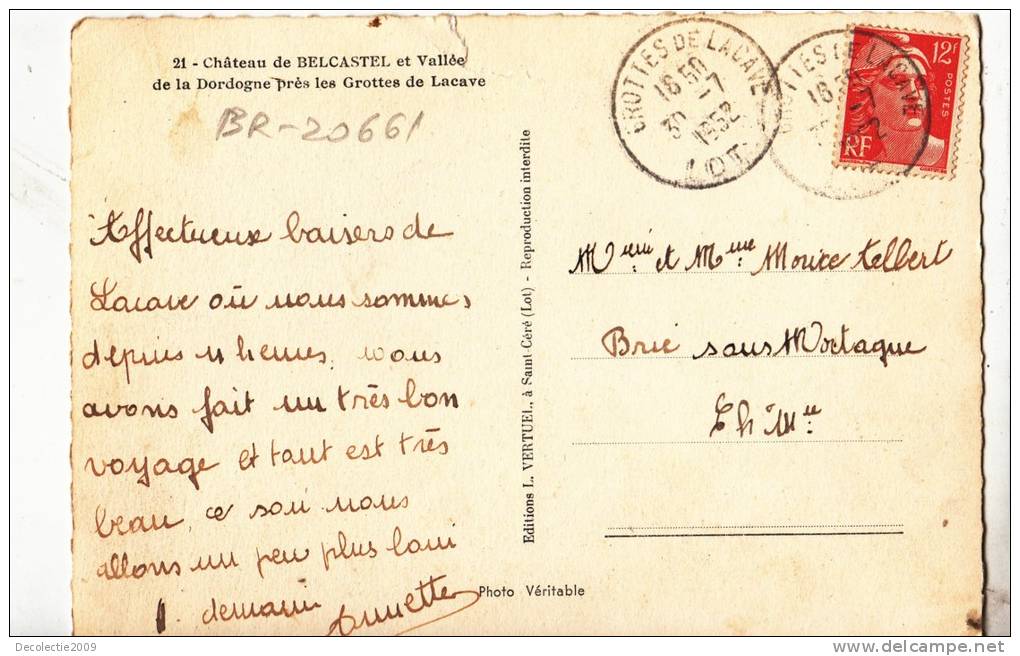 21 - Château de BELCASTEL et Vallée
de la Dordogne près les Grottes de Lacave
BR-20661
Affectueux baisers de
Lacave où nous sommes
depuis 11 heures. nous
avons fait un très bon
voyage et tout est très
beau, ce soir nous
allons un peu plus loin
demain
Annette
Editions L. VERTUEL, à Saint-Céré (Lot) - Reproduction interdite
Photo Véritable
GROTTES DE LACAVE
16 50
30 - 7
1952
LOT
GROTTES DE LACAVE
12f
POSTES
RF
et Mme Morice Albert
Brie sous Mortagne
Ch Mme
Decolectie2009
www.delcampe.net